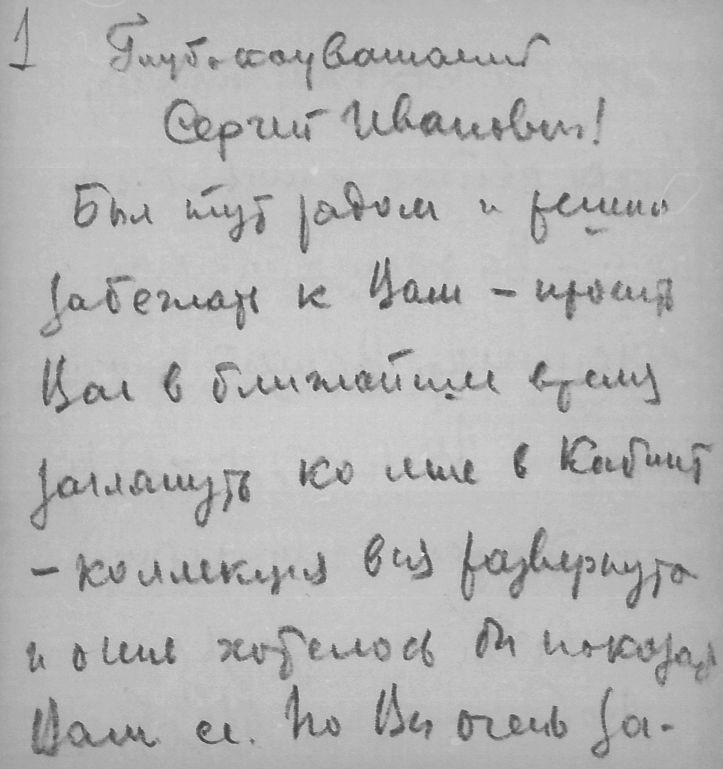 1 Глубокоуважаемый
Сергей Иванович!
Был тут рядом и решил
забежать к Вам – просить
Вас в ближайшее время
заглянуть ко мне в Кабинет
– коллекция вся развернута
и очень хотелось бы показать
Вам ее. Но Вы очень за-